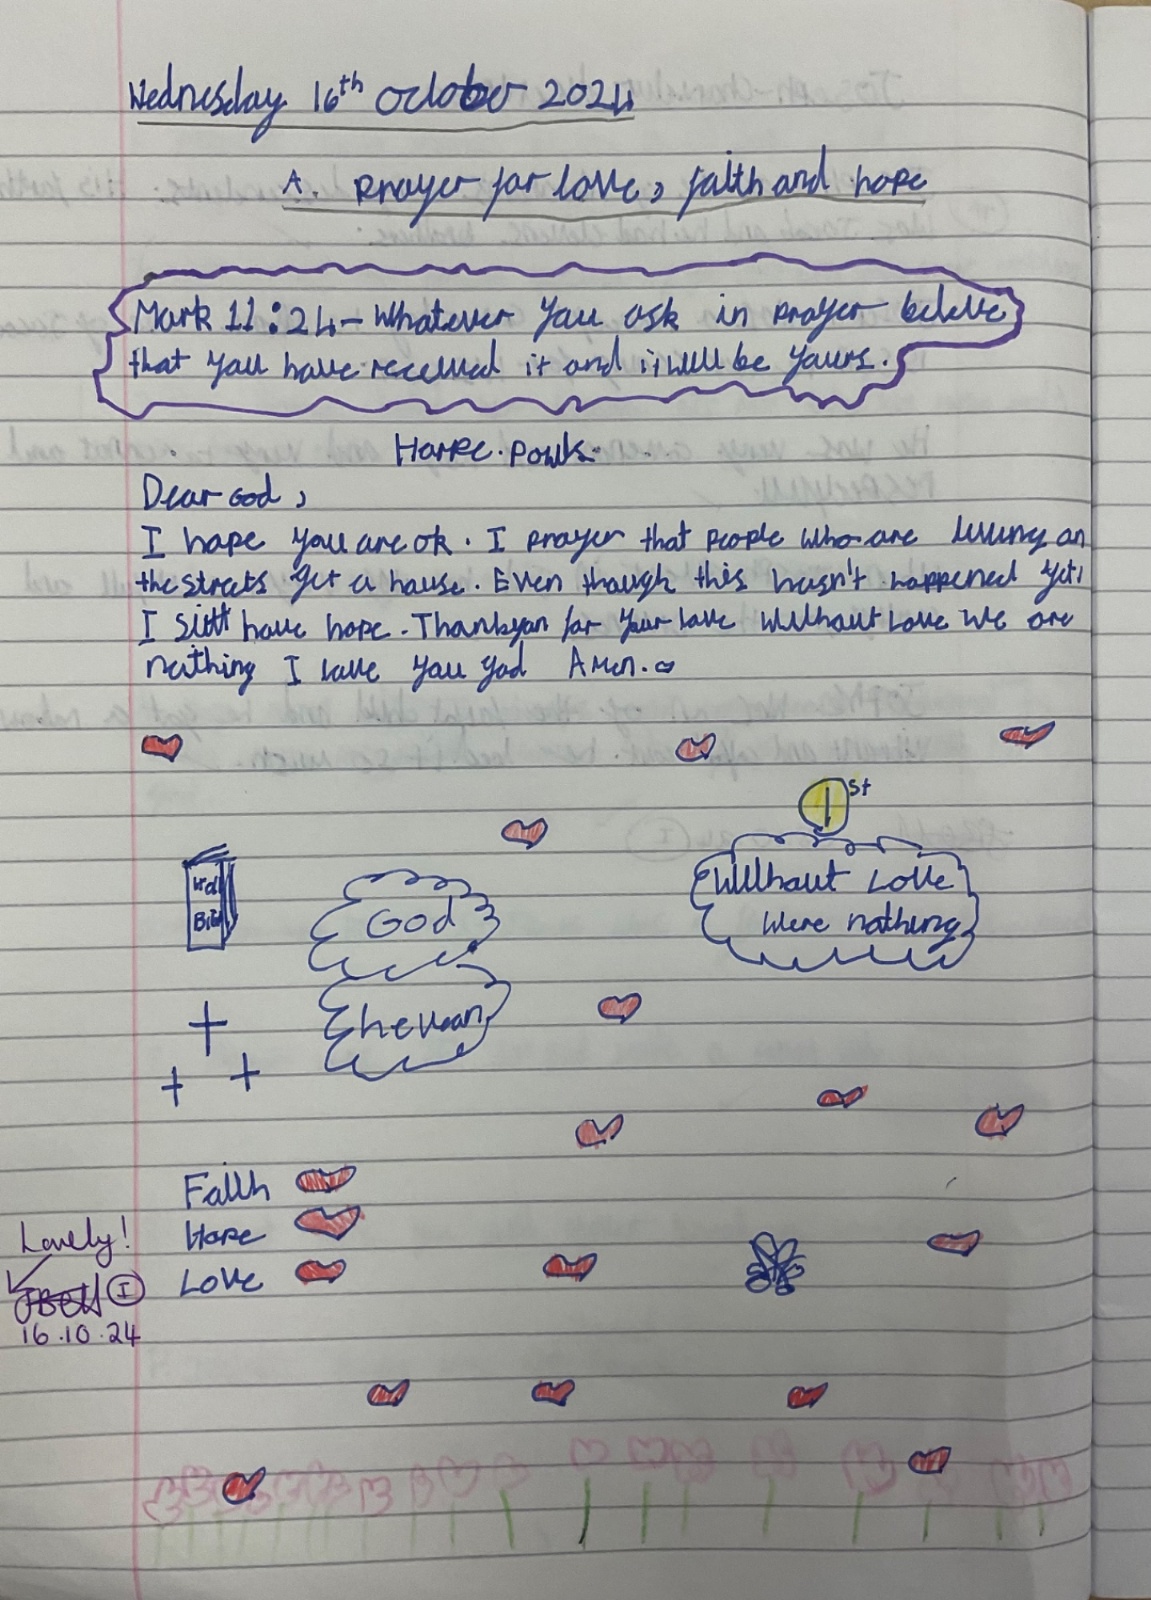 Wednesday 16th October 2024
A. prayer for love, faith and hope
Mark 11:24 - Whatever you ask in prayer believe
that you have received it and it will be yours.
Dear God,
I hope you are ok. I prayer that people who are living on
the streets get a house. Even though this hasn't happened yet,
I still have hope. Thankyou for your love without love we are
nothing I love you god Amen.
1st
God
Without Love
were nothing
Faith
Hope
Love
Lovely!
I
16.10.24